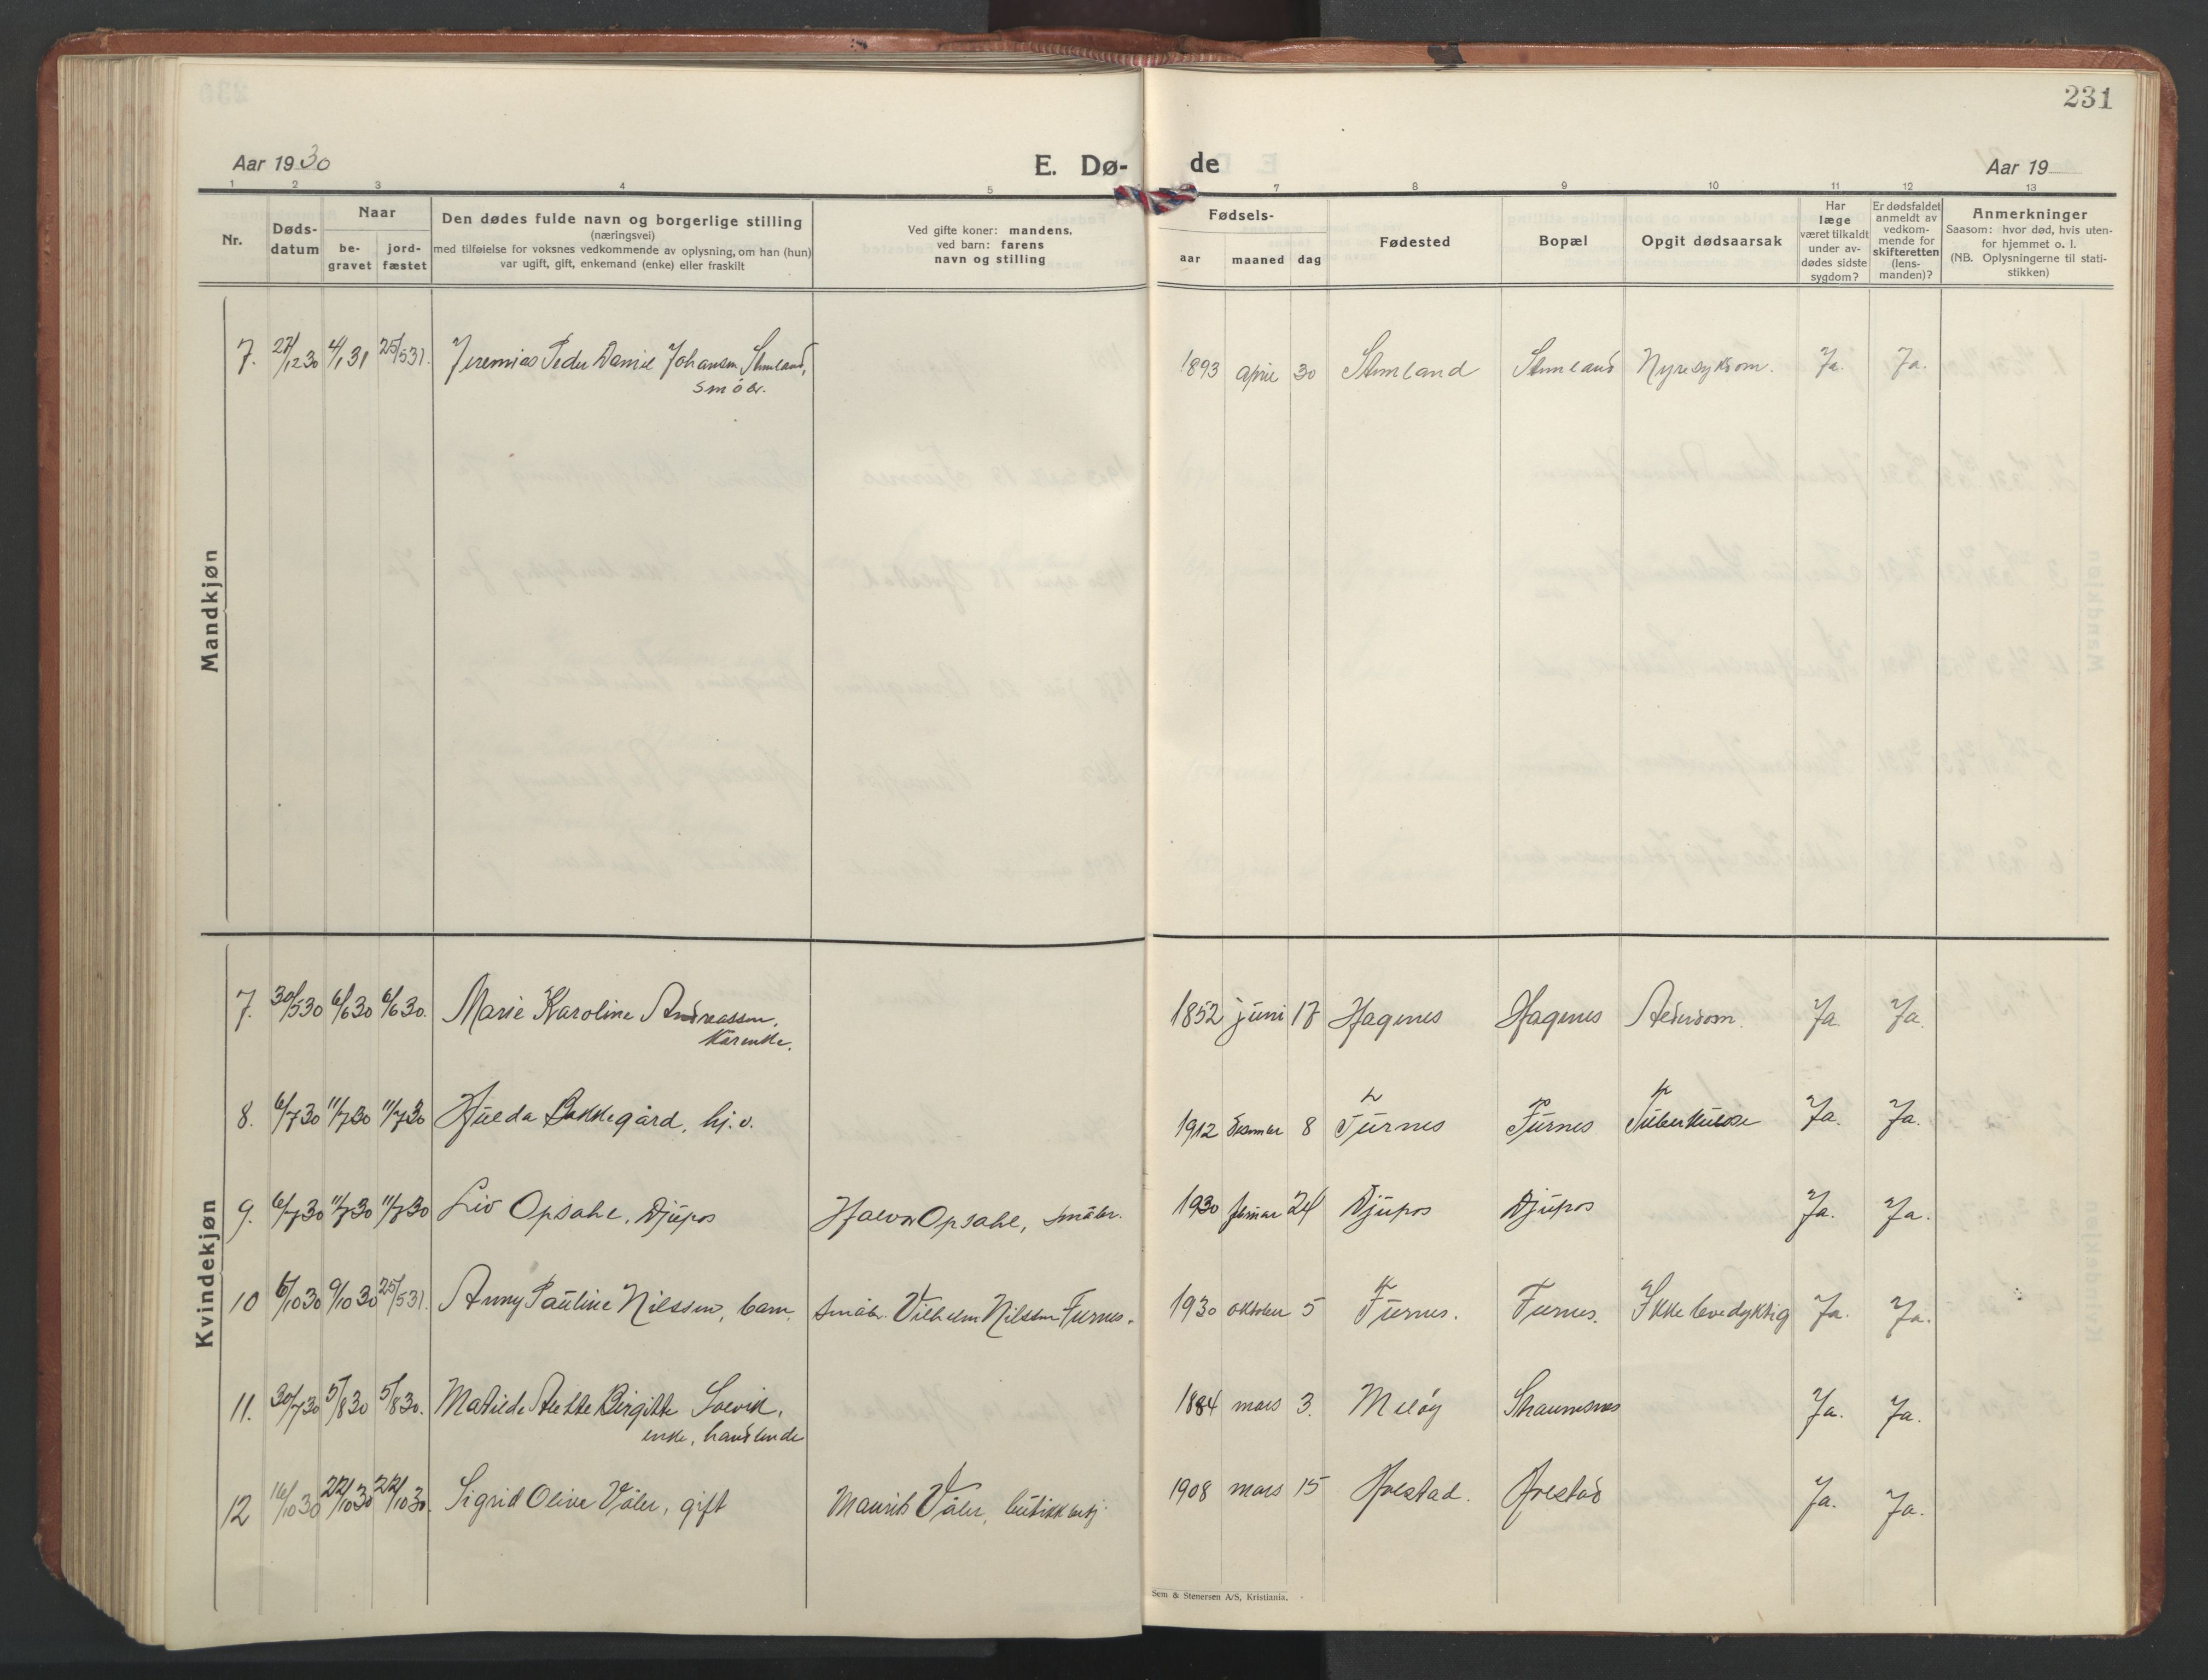 231
Aar 1930
E. Dø-
de
Aar 19
1 2 3 4 5 7 8 9 10 11 12 13
Nr.
Døds-
datum
Naar
be-
gravet
jord-
fæstet
Den dødes fulde navn og borgerlige stilling
(næringsvei)
med tilføielse for voksnes vedkommende av oplysning, om han (hun)
var ugift, gift, enkemand (enke) eller fraskilt
Ved gifte koner: mandens,
ved barn: farens
navn og stilling
Fødsels-
aar maaned dag
Fødested
Bopæl
Opgit dødsaarsak
Har
læge
været tilkaldt
under av-
dødes sidste
sygdom?
Er dødsfaldet
anmeldt av
vedkom-
mende for
skifteretten
(lens-
manden)?
Anmerkninger
Saasom: hvor død, hvis uten-
for hjemmet o. l.
(NB. Oplysningerne til stati-
stikken)
Mandkjøn
7. 27/12 30 4/1 31 25/5 31. Jeremias Peder Daniel Johansen, 1893 april 30 Nyresykdom. Ja. Ja.
småbr.
Kvindekjøn
7. 30/5 30 6/6 30 6/6 30. Marie Karoline Andreassen, 1852 juni 17 Hagenes Hagenes Alderdom. Ja. Ja.
kårenke.
8. 6/7 30 11/7 30 11/7 30 Hulda Bakkegård, hj.v. 1912 8 Furnes Furnes Tuberkulose Ja. Ja.
9. 6/7 30 11/7 30 11/7 30 Liv Opsahl, Djupos Halvor Opsahl, småbr. 1930 februar 24 Djupos Djupos Ja. Ja.
10 6/10 30 9/10 30 25/5 31. Anny Pauline Nilssen, barn, småbr. Vilhelm Nilssen Furnes. 1930 oktober 5 Furnes. Furnes. Ikke levedyktig Ja. Ja.
11. 30/7 30 5/8 30 5/8 30. Matilde Alette Birgitte Solvik, 1884 mars 3. Meløy Ja. Ja.
enke, handlende
12 16/10 30 22/10 30 22/10 30. Sigrid Olive Våler, gift Maurits Våler, butikkbetj. 1908 mars 15 Ørestad. Ørestad Ja. Ja.
Sem & Stenersen A/S, Kristiania.